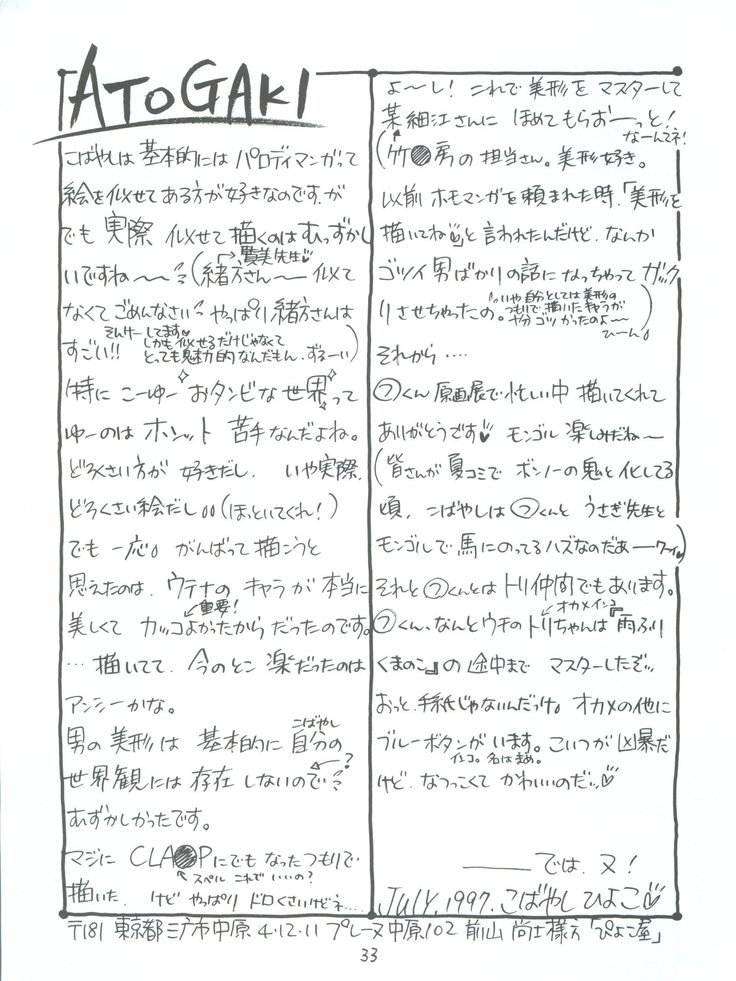 ATOGAKI
こばやしは基本的には パロディマンガって
絵を似せてある方が好きなのです.が
でも 実際 似せて描くのは むっずかし
いですね〜〜 (緒方さん〜 似せて
賢美先生♥
なくて ごめんなさい やっぱり 緒方さんは
そんけーしてます♥
すごい!! しかも似せるだけじゃなくて
とっても魅力的なんだもん. ずるーい)
特に こーゆー おタンビな世界って
ゆーのは ホント 苦手なんだよね。
どろくさい方が 好きだし. いや実際.
どろくさい絵だし。。(ほっといてくれ!)
でも 一応。 がんばって描こうと
思えたのは. ウテナの キャラが 本当に
重要!
美しくて カッコよかったから だったのです。
… 描いてて. 今のとこ 楽だったのは
アンシーかな。
こばやし
男の美形は 基本的に 自分の
世界観には 存在 しないので ?
むずかしかったです。
マジに CLA●Pにでも なったつもりで
スペル これでいいの?
描いた. けど やっぱり ドロくさいけどネ….
よ〜し! これで 美形を マスターして
某 細江さんに ほめて もらおーーっと!
なーんてネ!
(竹●房の 担当さん。美形好き。
以前 ホモマンガを頼まれた時.「美形を
描いてね♥」と 言われたんだけど. なんか
ゴッツイ 男ばかりの話に なっちゃって ガック
リさせちゃったの。 いや 自分としては 美形の
つもりで. 描いたキャラが
十分 ゴツかったのよ〜
ひーん。)
それから ….
㋡くん 原画展で 忙しい中 描いてくれて
ありがとうです♥ モンゴル 楽しみだね〜
(皆さんが 夏コミで ボンノーの鬼と 化してる
頃. こばやしは ㋡くんと うさぎ先生と
モンゴルで 馬にのってる ハズなのだぁーワーイ♥)
それと ㋡くんとは トリ仲間でもあります。
オカメインコ
㋡くん、なんとウチの トリちゃんは『雨ふり
くまのこ』の 途中まで マスターしたぞ…
おっと. 手紙じゃないんだっけ。 オカメの他に
ブルーボタンが います。こいつが 凶暴だ
インコ。名はまめ。
けど. なつっこくて かわいいのだ…♥
―― では. 又!
JULY. 1997. こばやし ひよこ♥
〒181 東京都三广市中原 4-12-11 プレーヌ中原102 前山 尚士様方「ぴよこ屋」
33